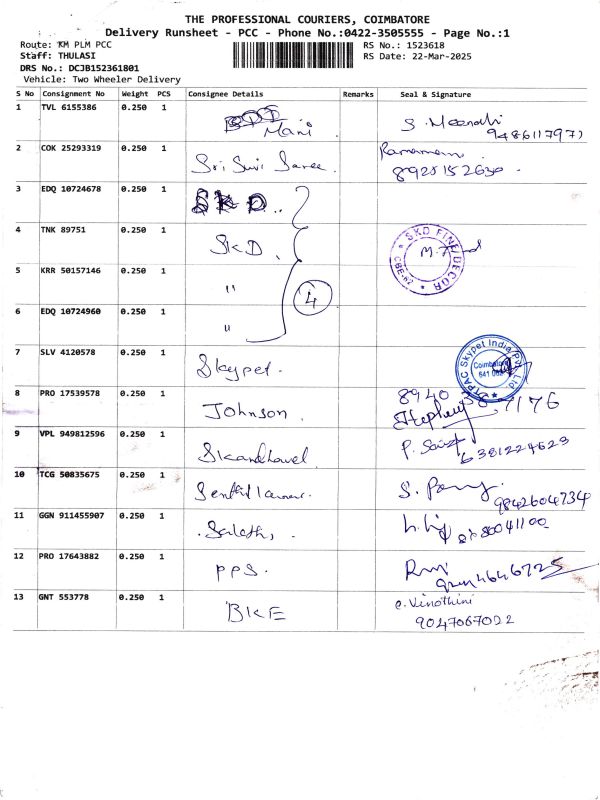 THE PROFESSIONAL COURIERS, COIMBATORE
Delivery Runsheet - PCC - Phone No.:0422-3505555 - Page No.:1
Route: KM PLM PCC
RS No.: 1523618
Staff: THULASI
RS Date: 22-Mar-2025
DRS No.: DCJB152361801
Vehicle: Two Wheeler Delivery
S No Consignment No Weight PCS Consignee Details Remarks Seal & Signature
1 TVL 6155386 0.250 1 Mani S. Meenathi
2 COK 25293319 0.250 1 Sri
3 EDQ 10724678 0.250 1 SKD
4 TNK 89751 0.250 1 SKD SKD FINE DECOR
5 KRR 50157146 0.250 1 "
4
6 EDQ 10724960 0.250 1 "
7 SLV 4120578 0.250 1 Skypet. Skypet India Pvt. Ltd. Coimbatore
8 PRO 17539578 0.250 1 Johnson 8940 7176
9 VPL 949812596 0.250 1 P. 6381224623
10 TCG 50835675 0.250 1 S. 9842604734
11 GGN 911455907 0.250 1
12 PRO 17643882 0.250 1 PPS.
13 GNT 553778 0.250 1 BKE C. Vinothini
9047067022